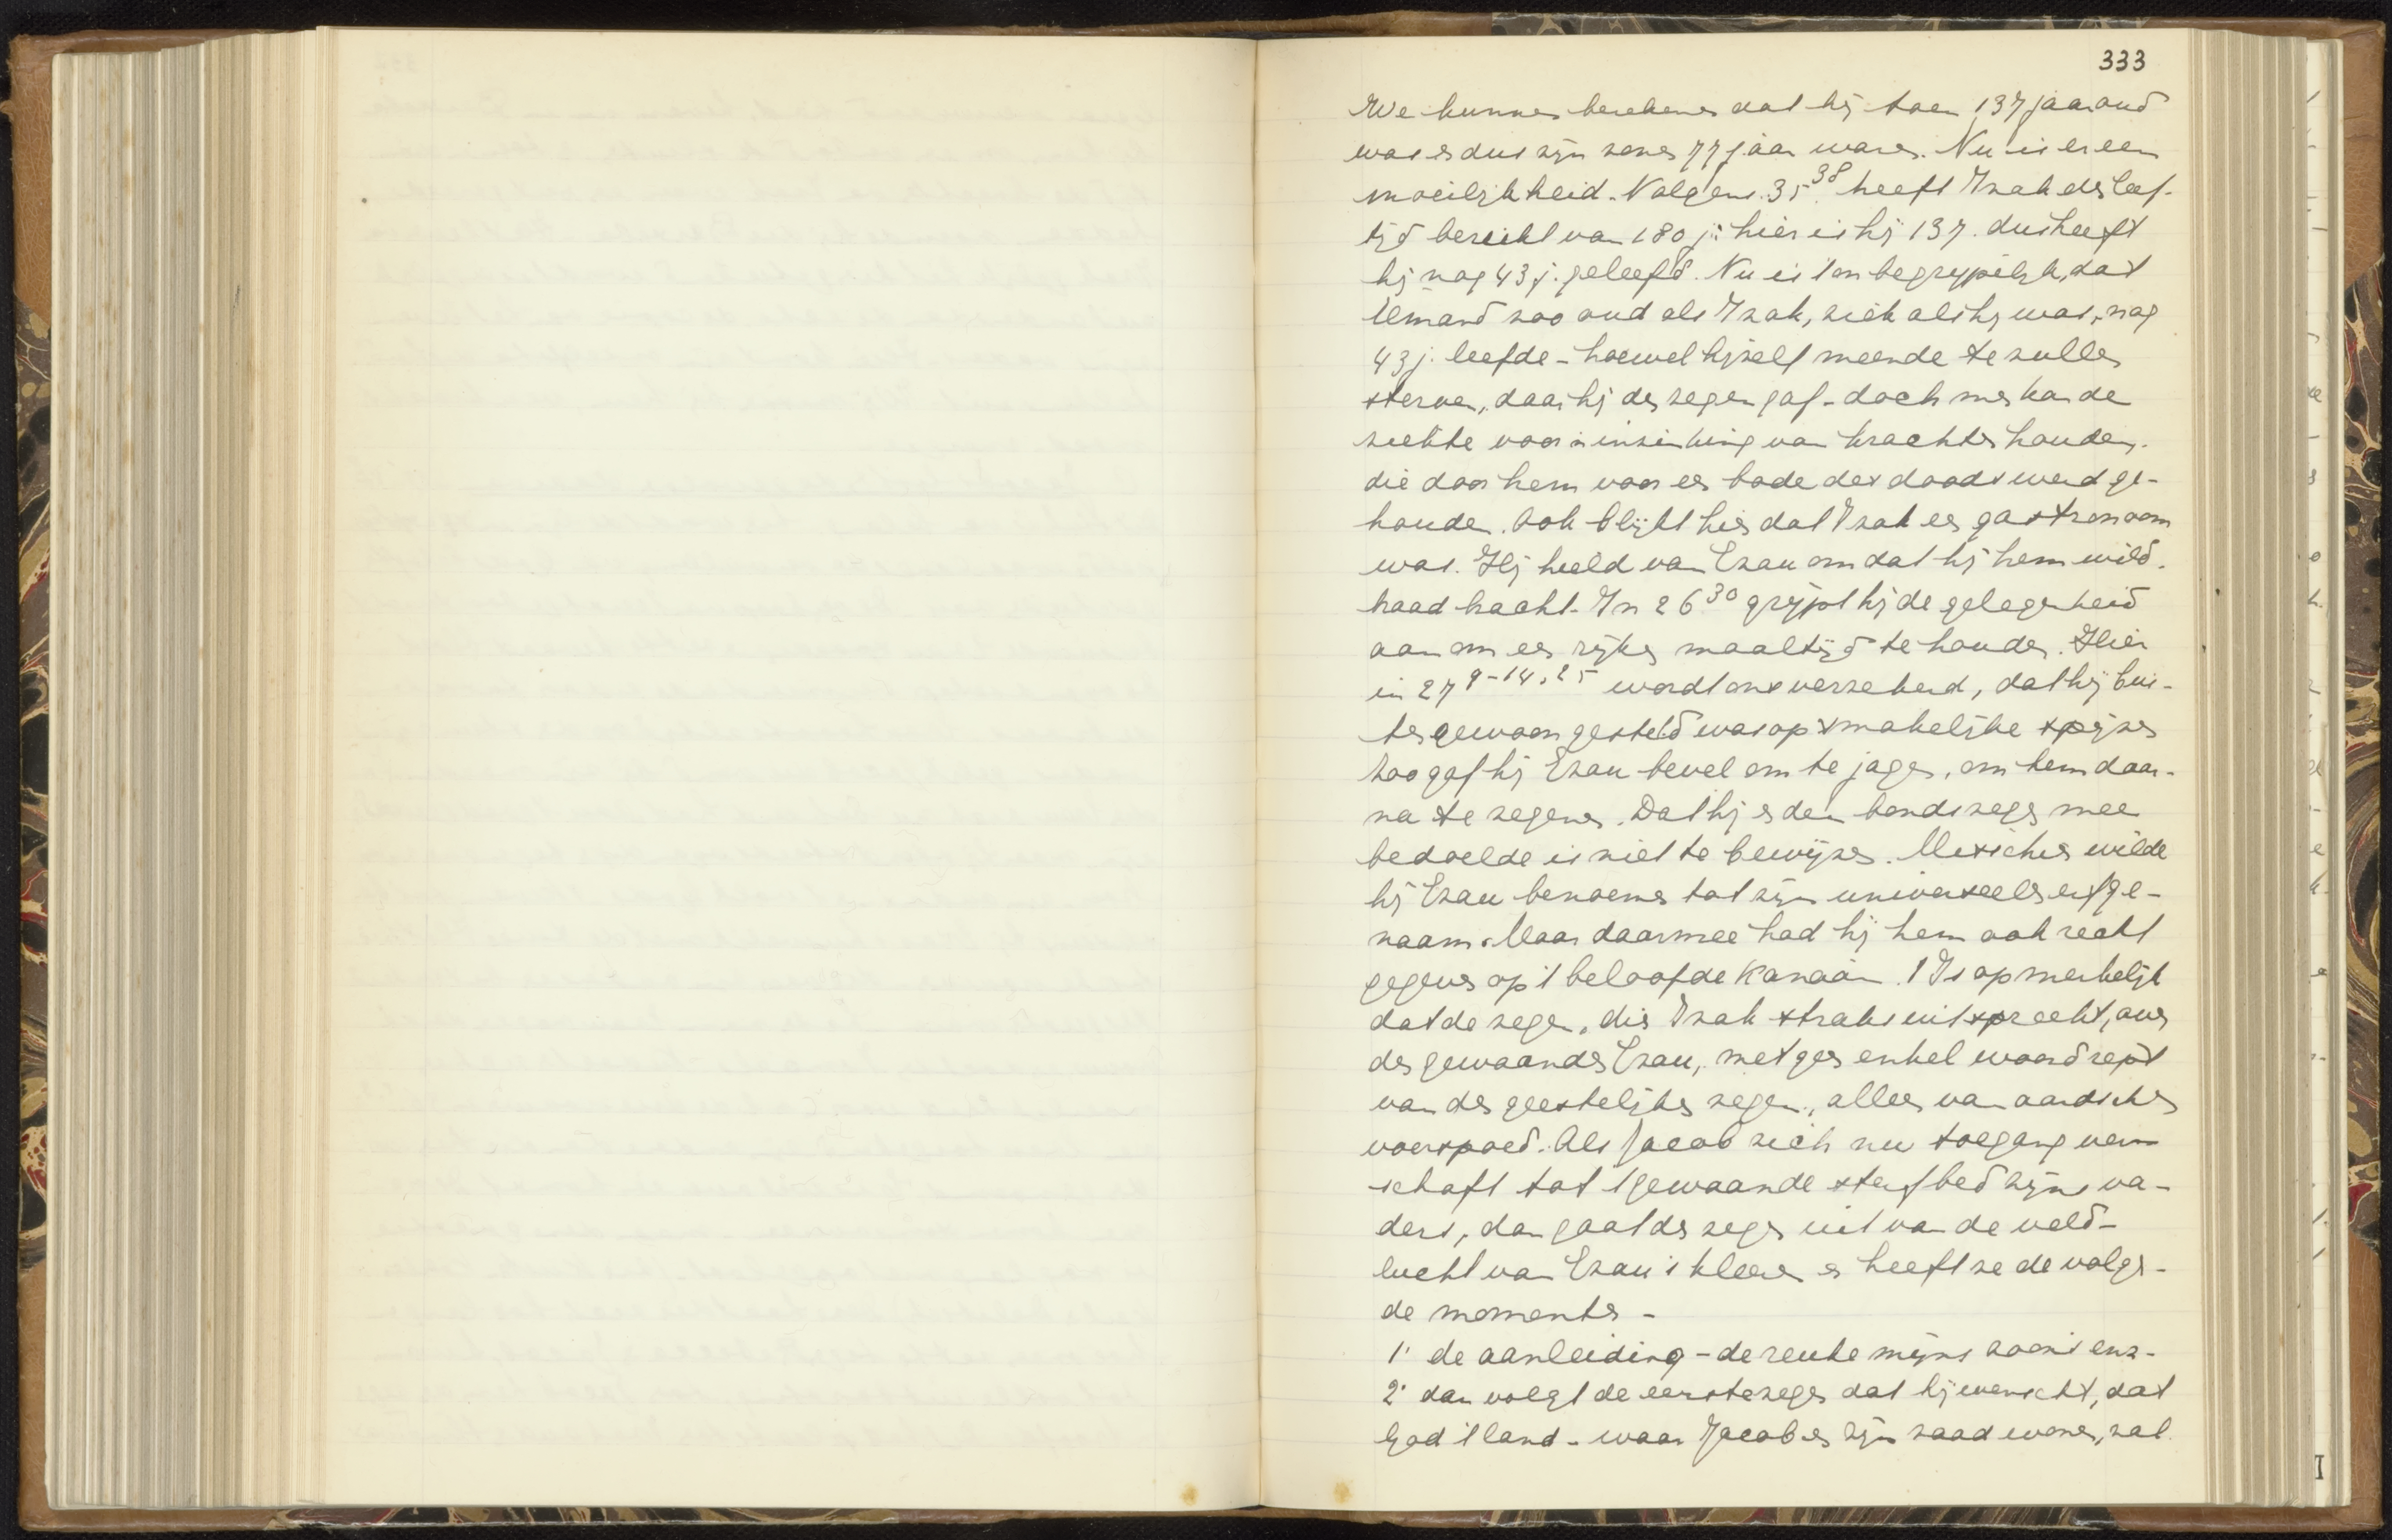 333
We kunnen berekenen dat hij toen 137 jaar oud
was en dus zijn zonen 77 jaar waren. Nu is er een
moeilijkheid. Volgens 35 38 heeft Izak den leef-
tijd bereikt van 180 j: hier is hij 137. dus heeft
hij nog 43 j. geleefd. Nu is 't onbegrijpelijk, dat
iemand zoo oud als Izak, ziek als hij was, nog
43 j. leefde - hoewel hijzelf meende te zullen
sterven, daar hij den zegen gaf - doch men kan de
ziekte voor 'n inzinking van krachten houden.
die door hem voor een bode des doods werd ge-
houden. Ook blijkt hier dat Izak een gastronoom
was. Hij hield van Ezau omdat hij hem wild-
braad bracht. In 26 30 grijpt hij de gelegenheid
aan om een rijken maaltijd te houden. Hier
in 27 9-14, 25 wordt ons verzekerd, dat hij bui-
tengewoon gesteld was op smakelijke spijzen
Zoo gaf hij Ezau bevel om te jagen, om hem daar-
na te zegenen. Dat hij er den bondszegen mee
bedoelde is niet te bewijzen. Misschien wilde
hij Ezau benoemen tot zijn universeelen erfge-
naam. Maar daarmee had hij hem ook recht
gegeven op 't beloofde Kanaän. 't Is opmerkelijk
dat de zegen, die Izak straks uitspreekt, over
den gewaanden Ezau, met geen enkel woord rept
van den geestelijken zegen, alleen van aardschen
voorspoed. Als Jacob zich nu toegang ver-
schaft tot 't gewaande sterfbed zijns va-
ders, dan gaat de zegen uit van de veld-
lucht van Ezau's kleeren en heeft ze de volgen-
de momenten -
1· de aanleiding - de reuke mijns zoons enz.
2· dan volgt de eerste zegen dat hij wenscht, dat
God 't land - waar Jacob en zijn zaad wonen, zal